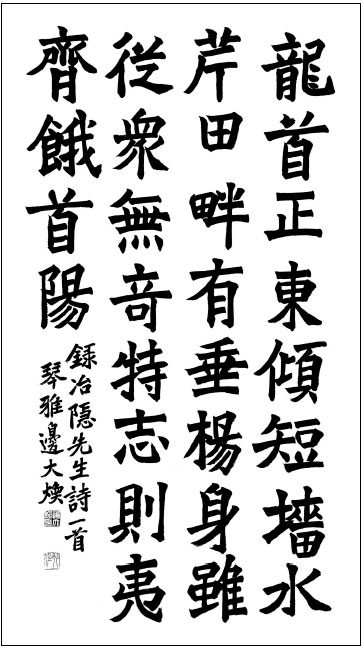 龍首正東傾短墻水
芹田畔有垂楊身雖
從衆無竒特志則夷
齊餓首陽
録冶隱先生詩一首
琴雅邊大煥